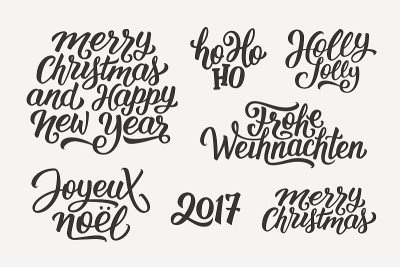 merry
Christmas
and Happy
New Year
hoHo
HO
Holly
Jolly
Frohe
Weihnachten
Joyeux
noël
2017
merry
Christmas